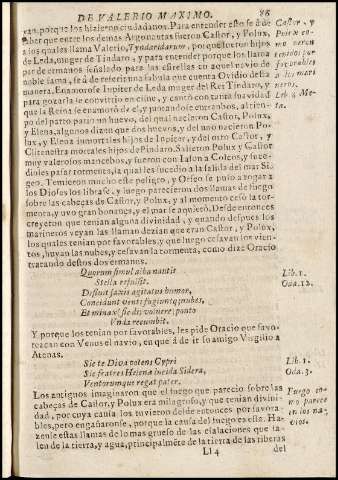 DE VALERIO MAXIMO. 86
van, porque los hizieron ciudadanos. Para entender esto se á de
saber que entre los demas Argonautas fueron Castor, y Polux,
a los quales llama Valerio, Tyndaridas, porque fueron hijos
de Leda, muger de Tindaro, y para entender porque los llama
par de ermanos señalado para las estrellas
noble fama, se á de referir una fabula que cuenta Ovidio desta
manera. Enamorose Iupiter de Leda muger del Rei Tindaro, y
para gozarla se convirtio en cisne, y cantó con tanta suavidad
que la Reina se enamoró de el, y
po del parto pario un huevo, del qual nacieron Castor, Polux,
y Elena, algunos dizen que dos huevos, y del uno nacieron Po-
lux, y Elena immortales hijos de Iupiter, y del otro Castor, y
Clitenestra mortales hijos de Pindaro. Salieron Polux y Castor
muy valerosos mancebos, y fueron con Iason a Colcos, y suce-
dioles passar tormenta, la qual les sucedio a la salida del mar Si-
geo. Temieron mucho este peligro, y Orfeo se puso a rogar a
los Dioses los librase, y luego parecieron dos llamas de fuego
sobre las cabeças de Castor, y Polux, y al momento cesó la tor-
menta, y uvo gran bonança, y el mar se aquietó. Desde entonces
creyeron que tenian alguna divinidad, y quando despues los
marineros veyan las llamas dezian que eran Castor, y Polux,
los quales tenian por favorables, y que luego cesavan los vien-
tos, huyan las nubes, y cesava la tormenta, como dize Oracio
tratando destos dos ermanos.
Quorum simul alba nautis
Stella refulsit,
Defluit saxis agitatus humor,
Concidunt venti fugiuntque nubes,
Et minax
Vnda recumbit.
Y porque los tenian por favorables, les pide Oracio que favo-
rezcan con Venus el navio, en que á de ir su amigo Virgilio a
Atenas.
Sic te Diva potens Cypri
Sic fratres Helenæ lucida Sidera,
Ventorumque regat pater.
Los antiguos imaginaron que el fuego que parecio sobre las
cabeças de Castor, y Polux era milagroso, y que tenian divini-
dad, por cuya causa los tuvieron desde entonces por favora-
bles, pero engañaronse, porque la causa del fuego es esta. Ha-
zense estas llamas de lo mas grueso de las esalaciones que sa-
len de la tierra, y agua, principalmēte de la tierra de las riberas
Ll 4 del
Castor, y
Polux co-
mo eran
tenidos por
favorables
a los mari
neros.
Lib. 1.
Oda. 12.
Lib. 1.
Oda. 3.
Fuego co-
mo parece
en los na-
vios.